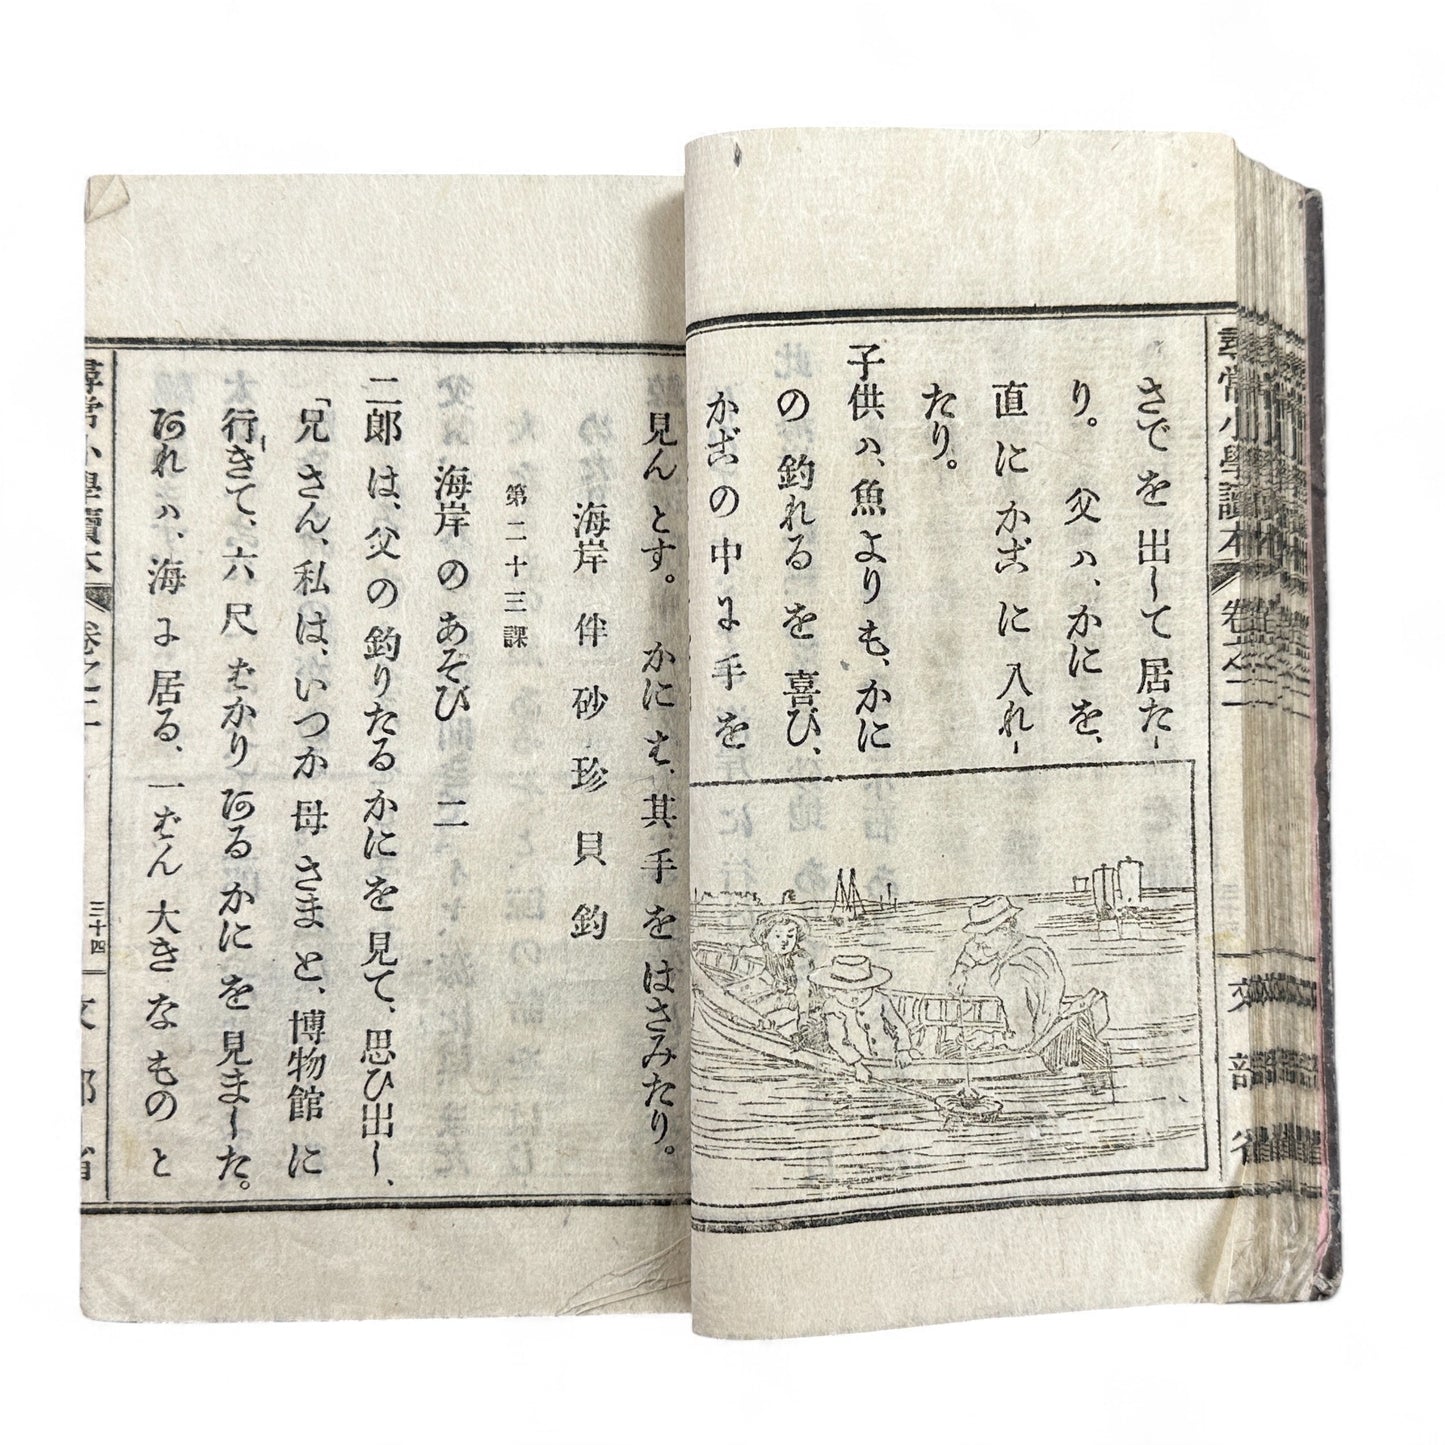 尋常小學讀本 卷之二 文部省
さでを出して居た
り。 父ハ、かにを、
直にかごに入れ
たり。
子供ハ、魚よりも、かに
の釣れるを喜び、
かごの中に手を
見んとす。 かには、其手をはさみたり。
海岸 伴 砂 珍 貝 釣
第二十三課
海岸のあそび 二
二郎は、父の釣りたるかにを見て、思ひ出し、
「兄さん、私は、いつか母さまと、博物館に
行きて、六尺ばかりあるかにを見ました。
あれハ、海に居る、一ばん大きなものと
尋常小學讀本 卷之二 三十四 文部省